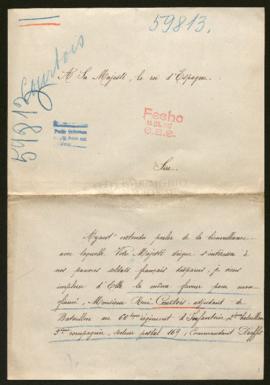 59813.
59813 Courtois
A Sa Majesté, le roi d'Espagne.
Fecho
Sire
Ayant entendu parler de la bienveillance
avec laquelle Votre Majesté daigne s'intéresser à
nos pauvres soldats français disparus, je viens
implorer d'Elle la même faveur pour mon
fiancé, Monsieur René Courtois adjudant de
Bataillon au régiment d'Infanterie, 2e bataillon
5me compagnie, secteur postal 169, Commandant